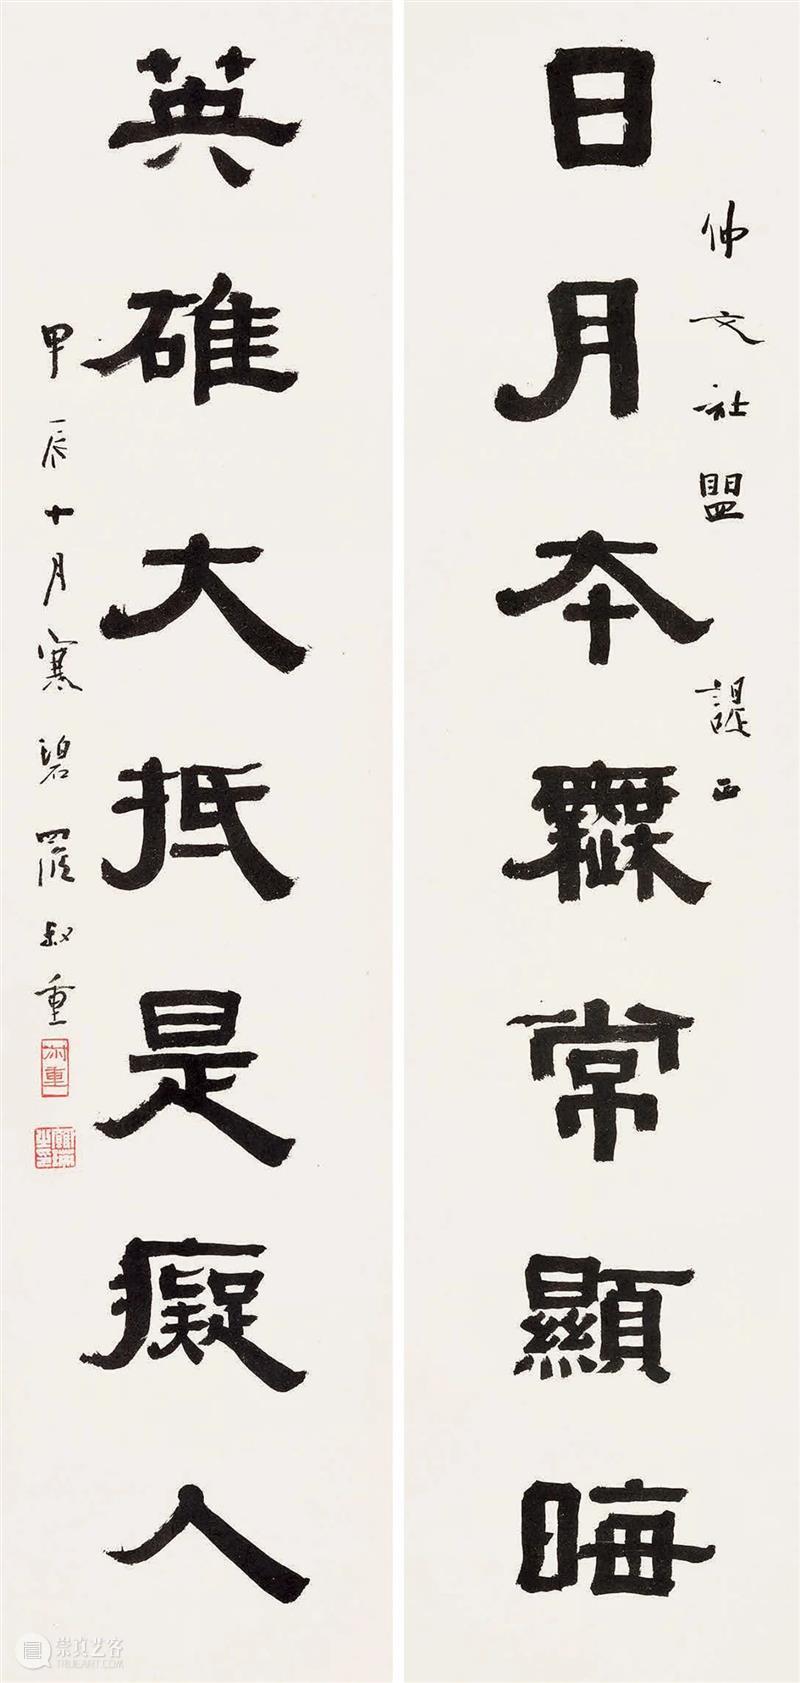 仲文社盟 諟正
日月本無常顯晦
英雄大抵是癡人
甲辰十月寒碧羅叔重
叔重
崇真艺客
TRUEART.COM